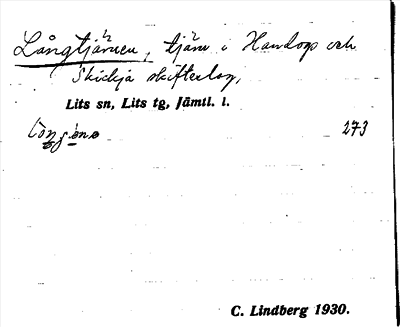 Långtjärnen, tjärn i Handog och
Skickja skifteslag,
Lits sn, Lits tg, Jämtl. l.
273
C. Lindberg 1930.